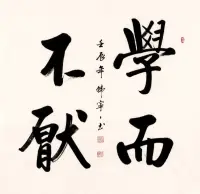 學而
不厭
壬辰年韓寧寧書